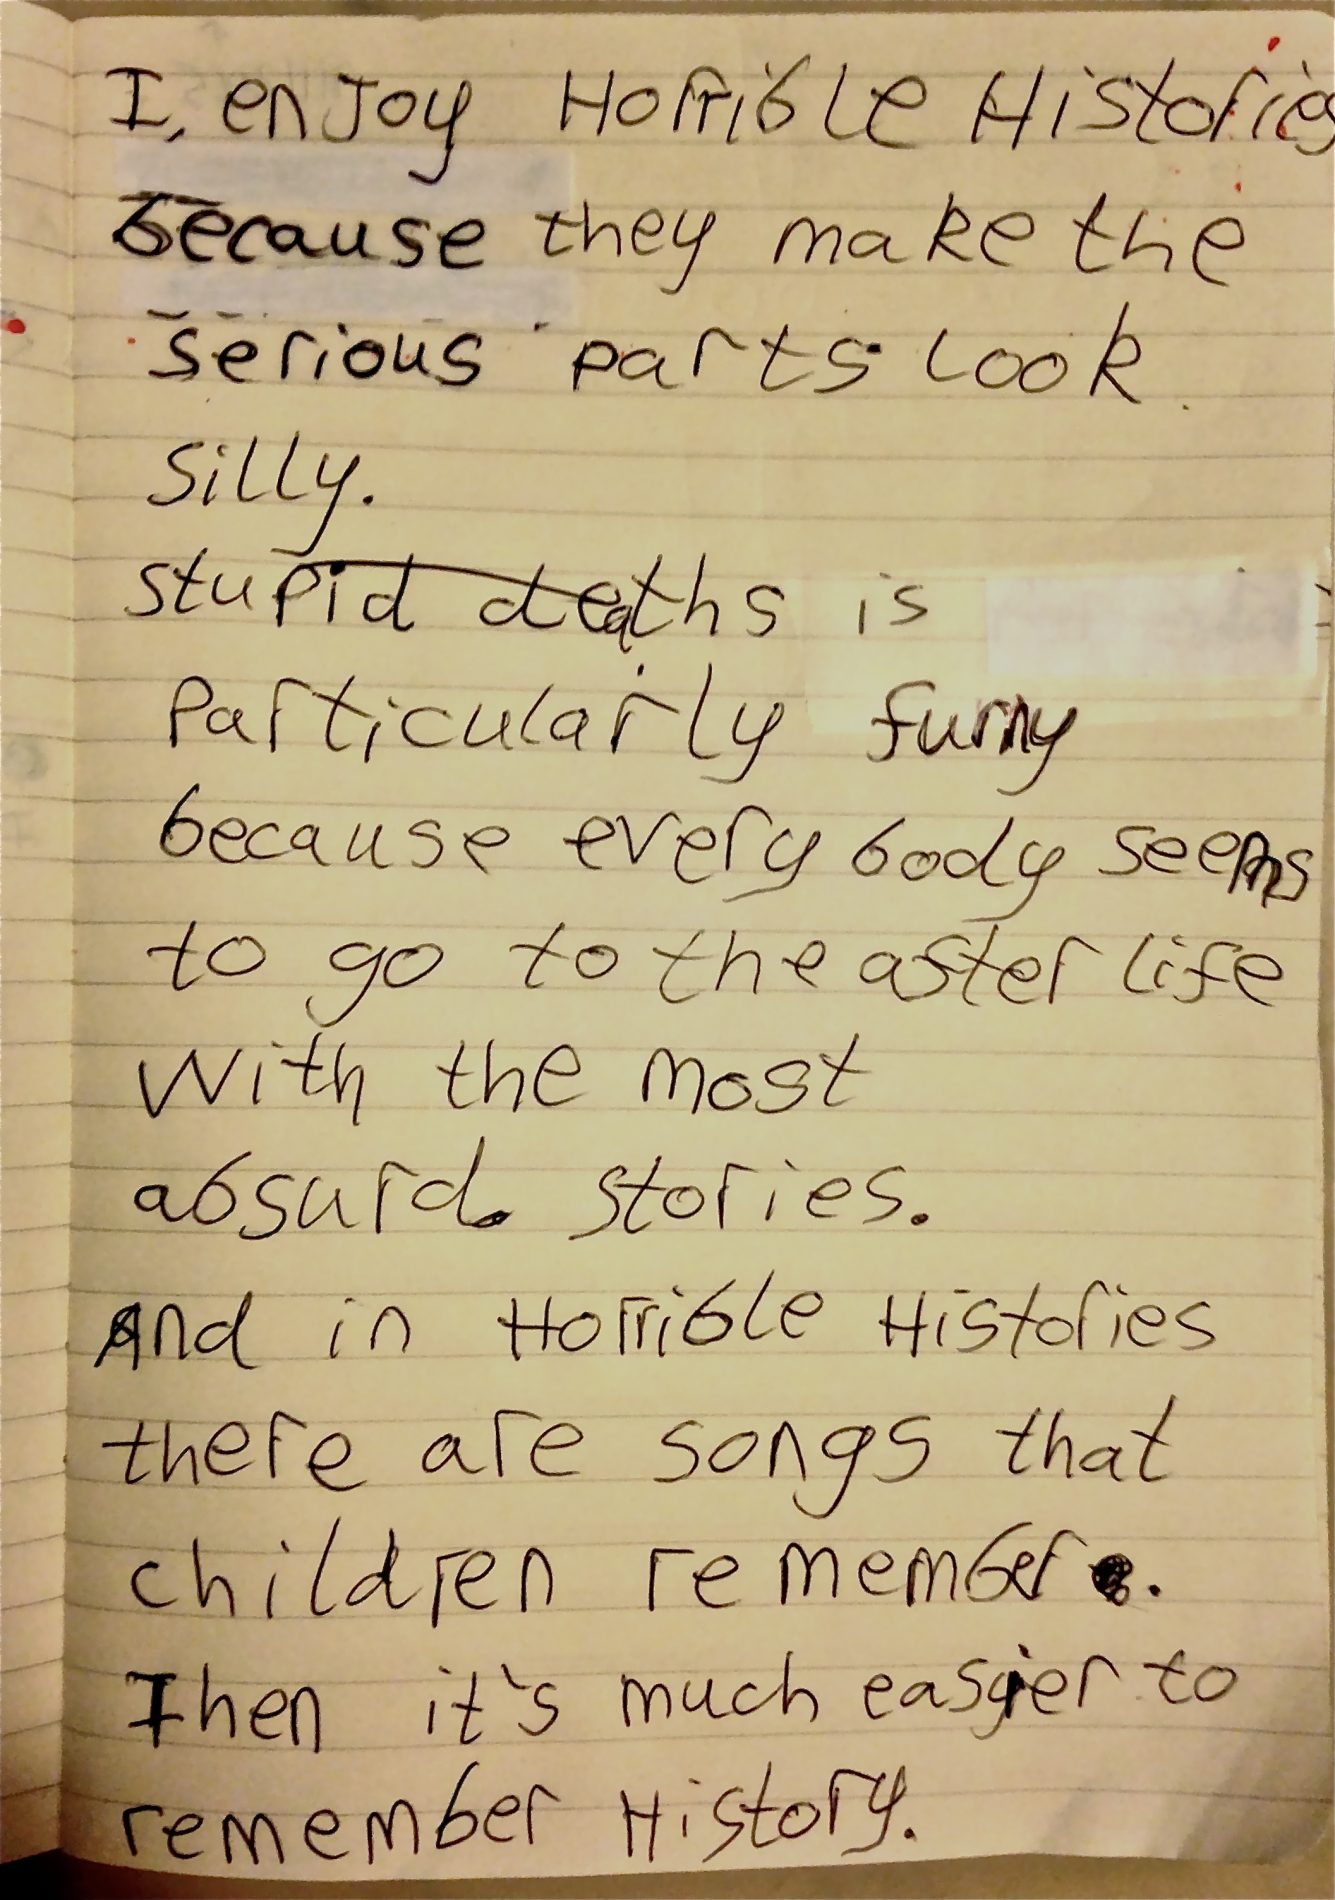 I, enjoy Horrible Histories
because they make the
serious parts look
silly.
stupid deaths is
particularly funny
because every body seems
to go to the after life
with the most
absurd. stories.
And in Horrible Histories
there are songs that
children remember.
Then it's much easier to
remember History.